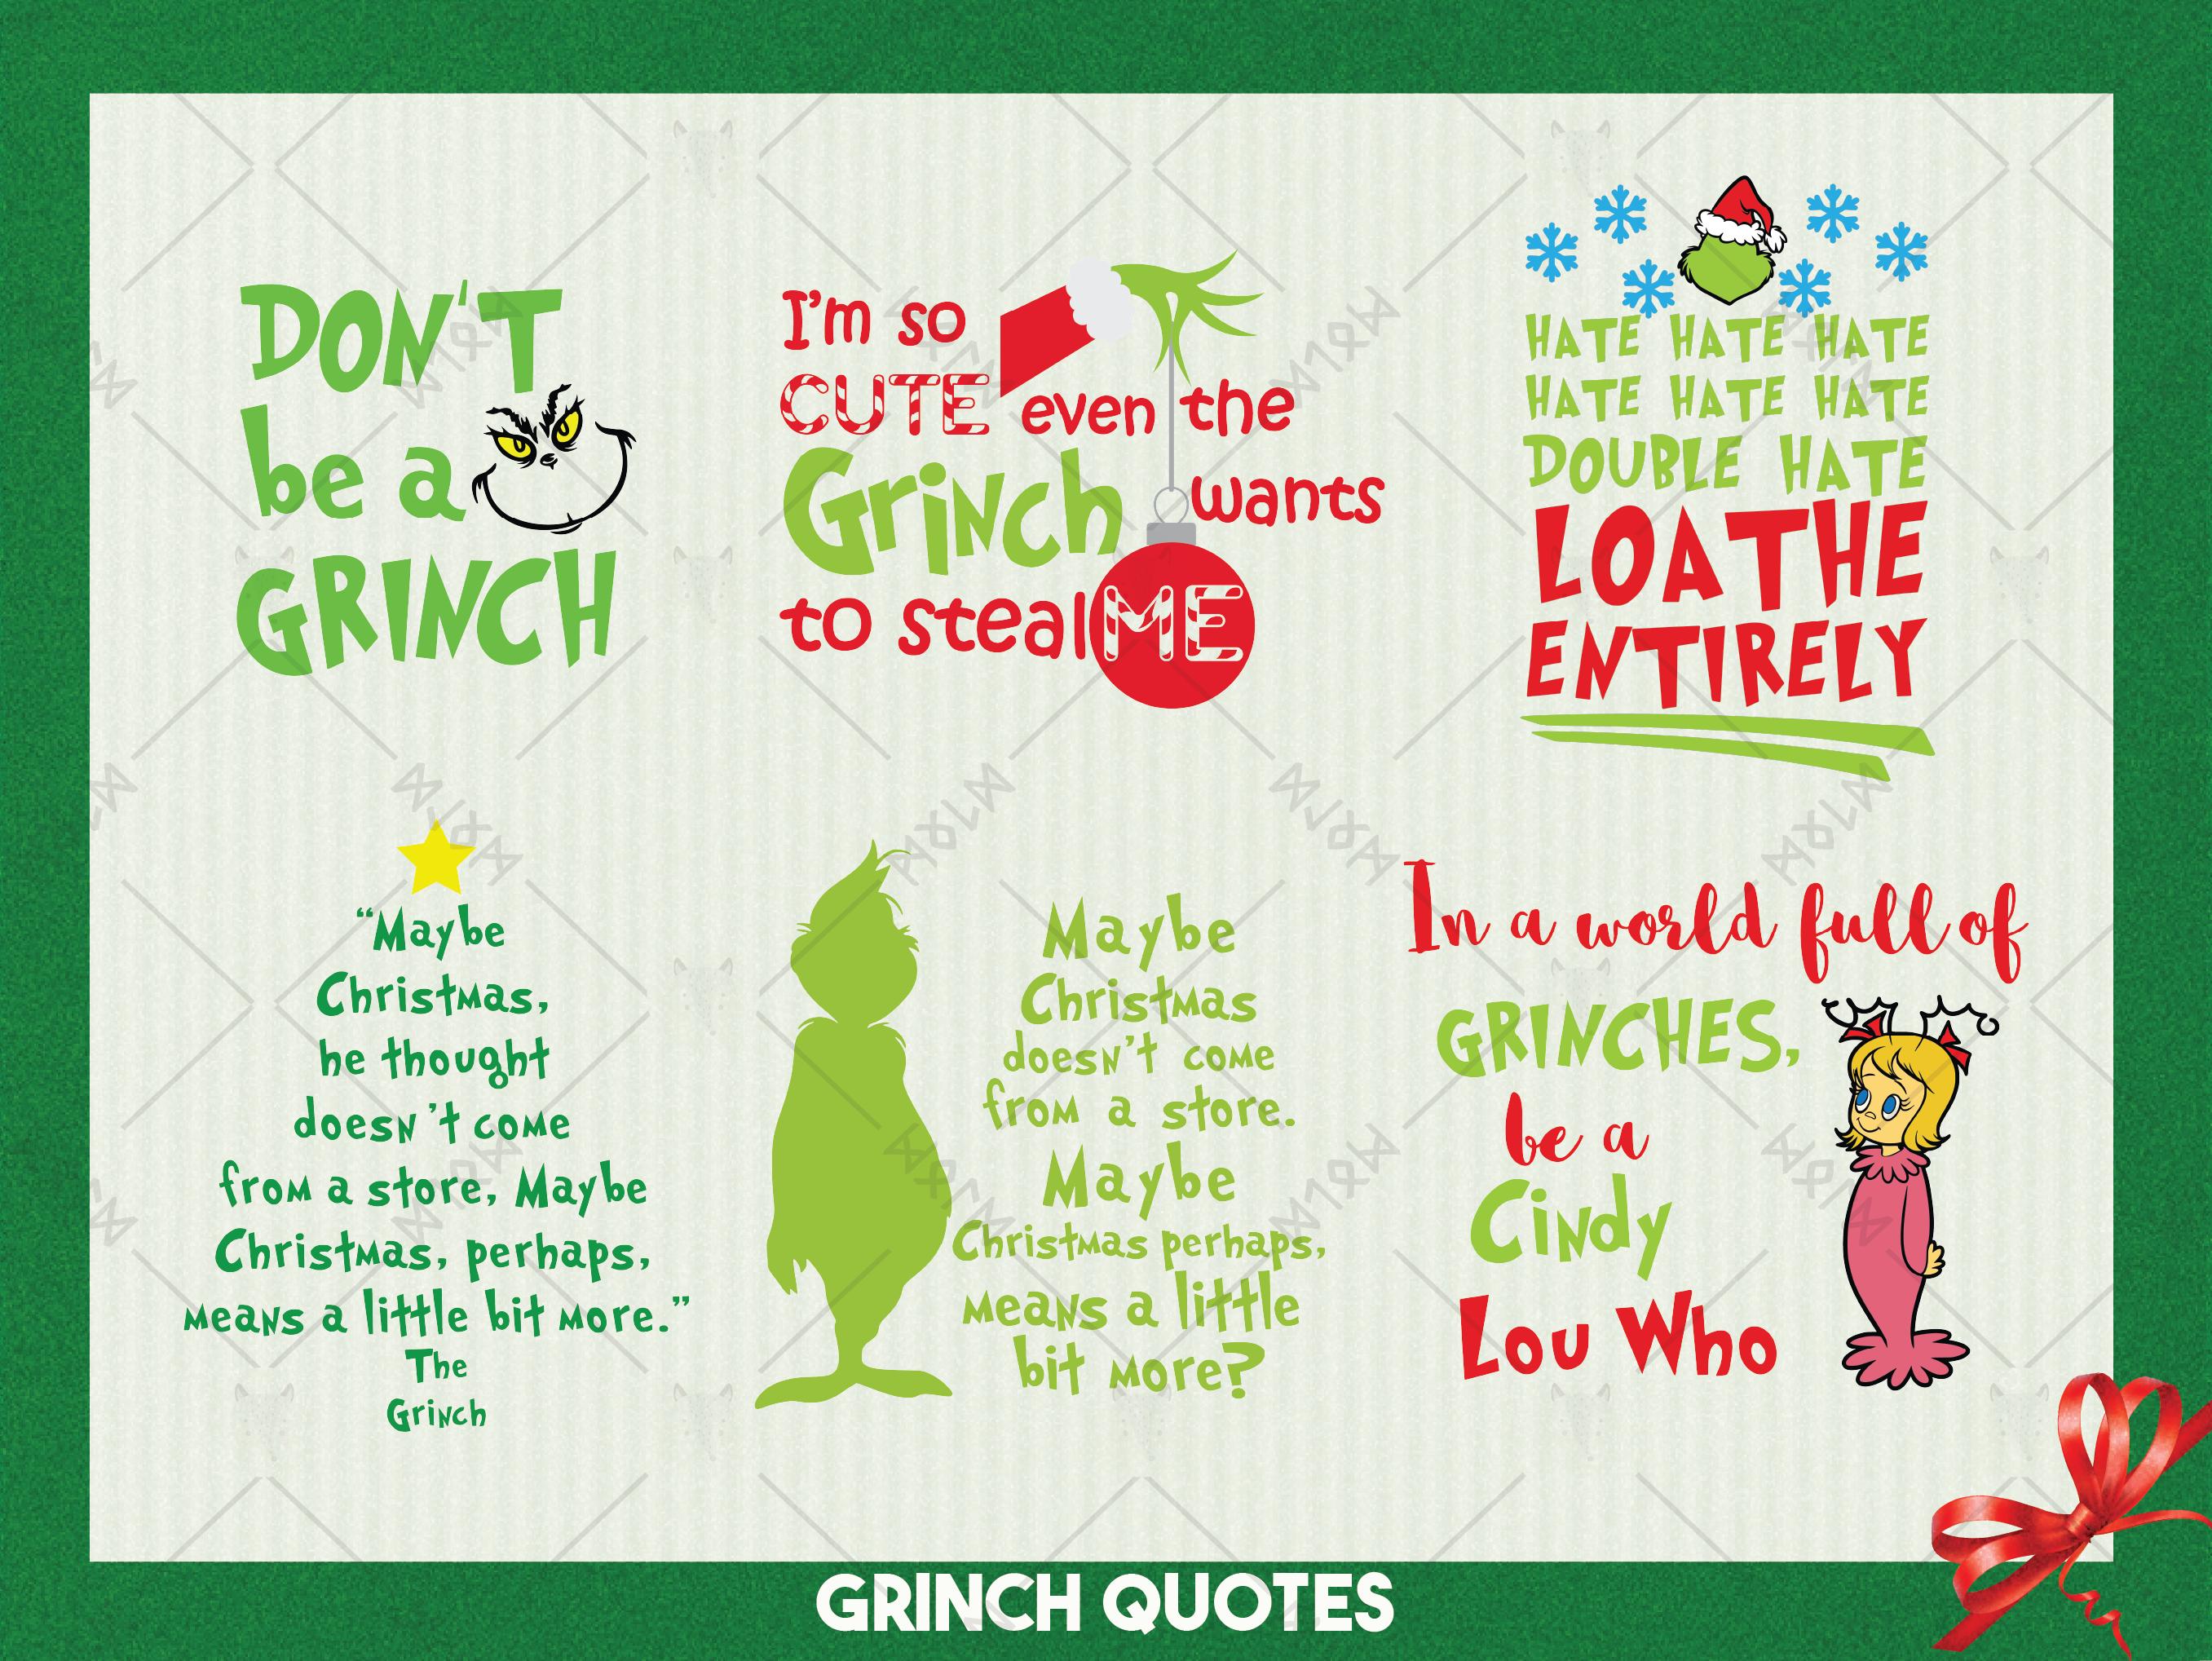 DON'T
be a
GRINCH
I'm so
CUTE even the
Grinch wants
to steal ME
HATE HATE HATE
HATE HATE HATE
DOUBLE HATE
LOATHE
ENTIRELY
“Maybe
Christmas,
he thought
doesn't come
from a store, Maybe
Christmas, perhaps,
means a little bit more.”
The
Grinch
Maybe
Christmas
doesn't come
from a store.
Maybe
Christmas perhaps,
means a little
bit more?
In a world full of
GRINCHES,
be a
Cindy
Lou Who
GRINCH QUOTES